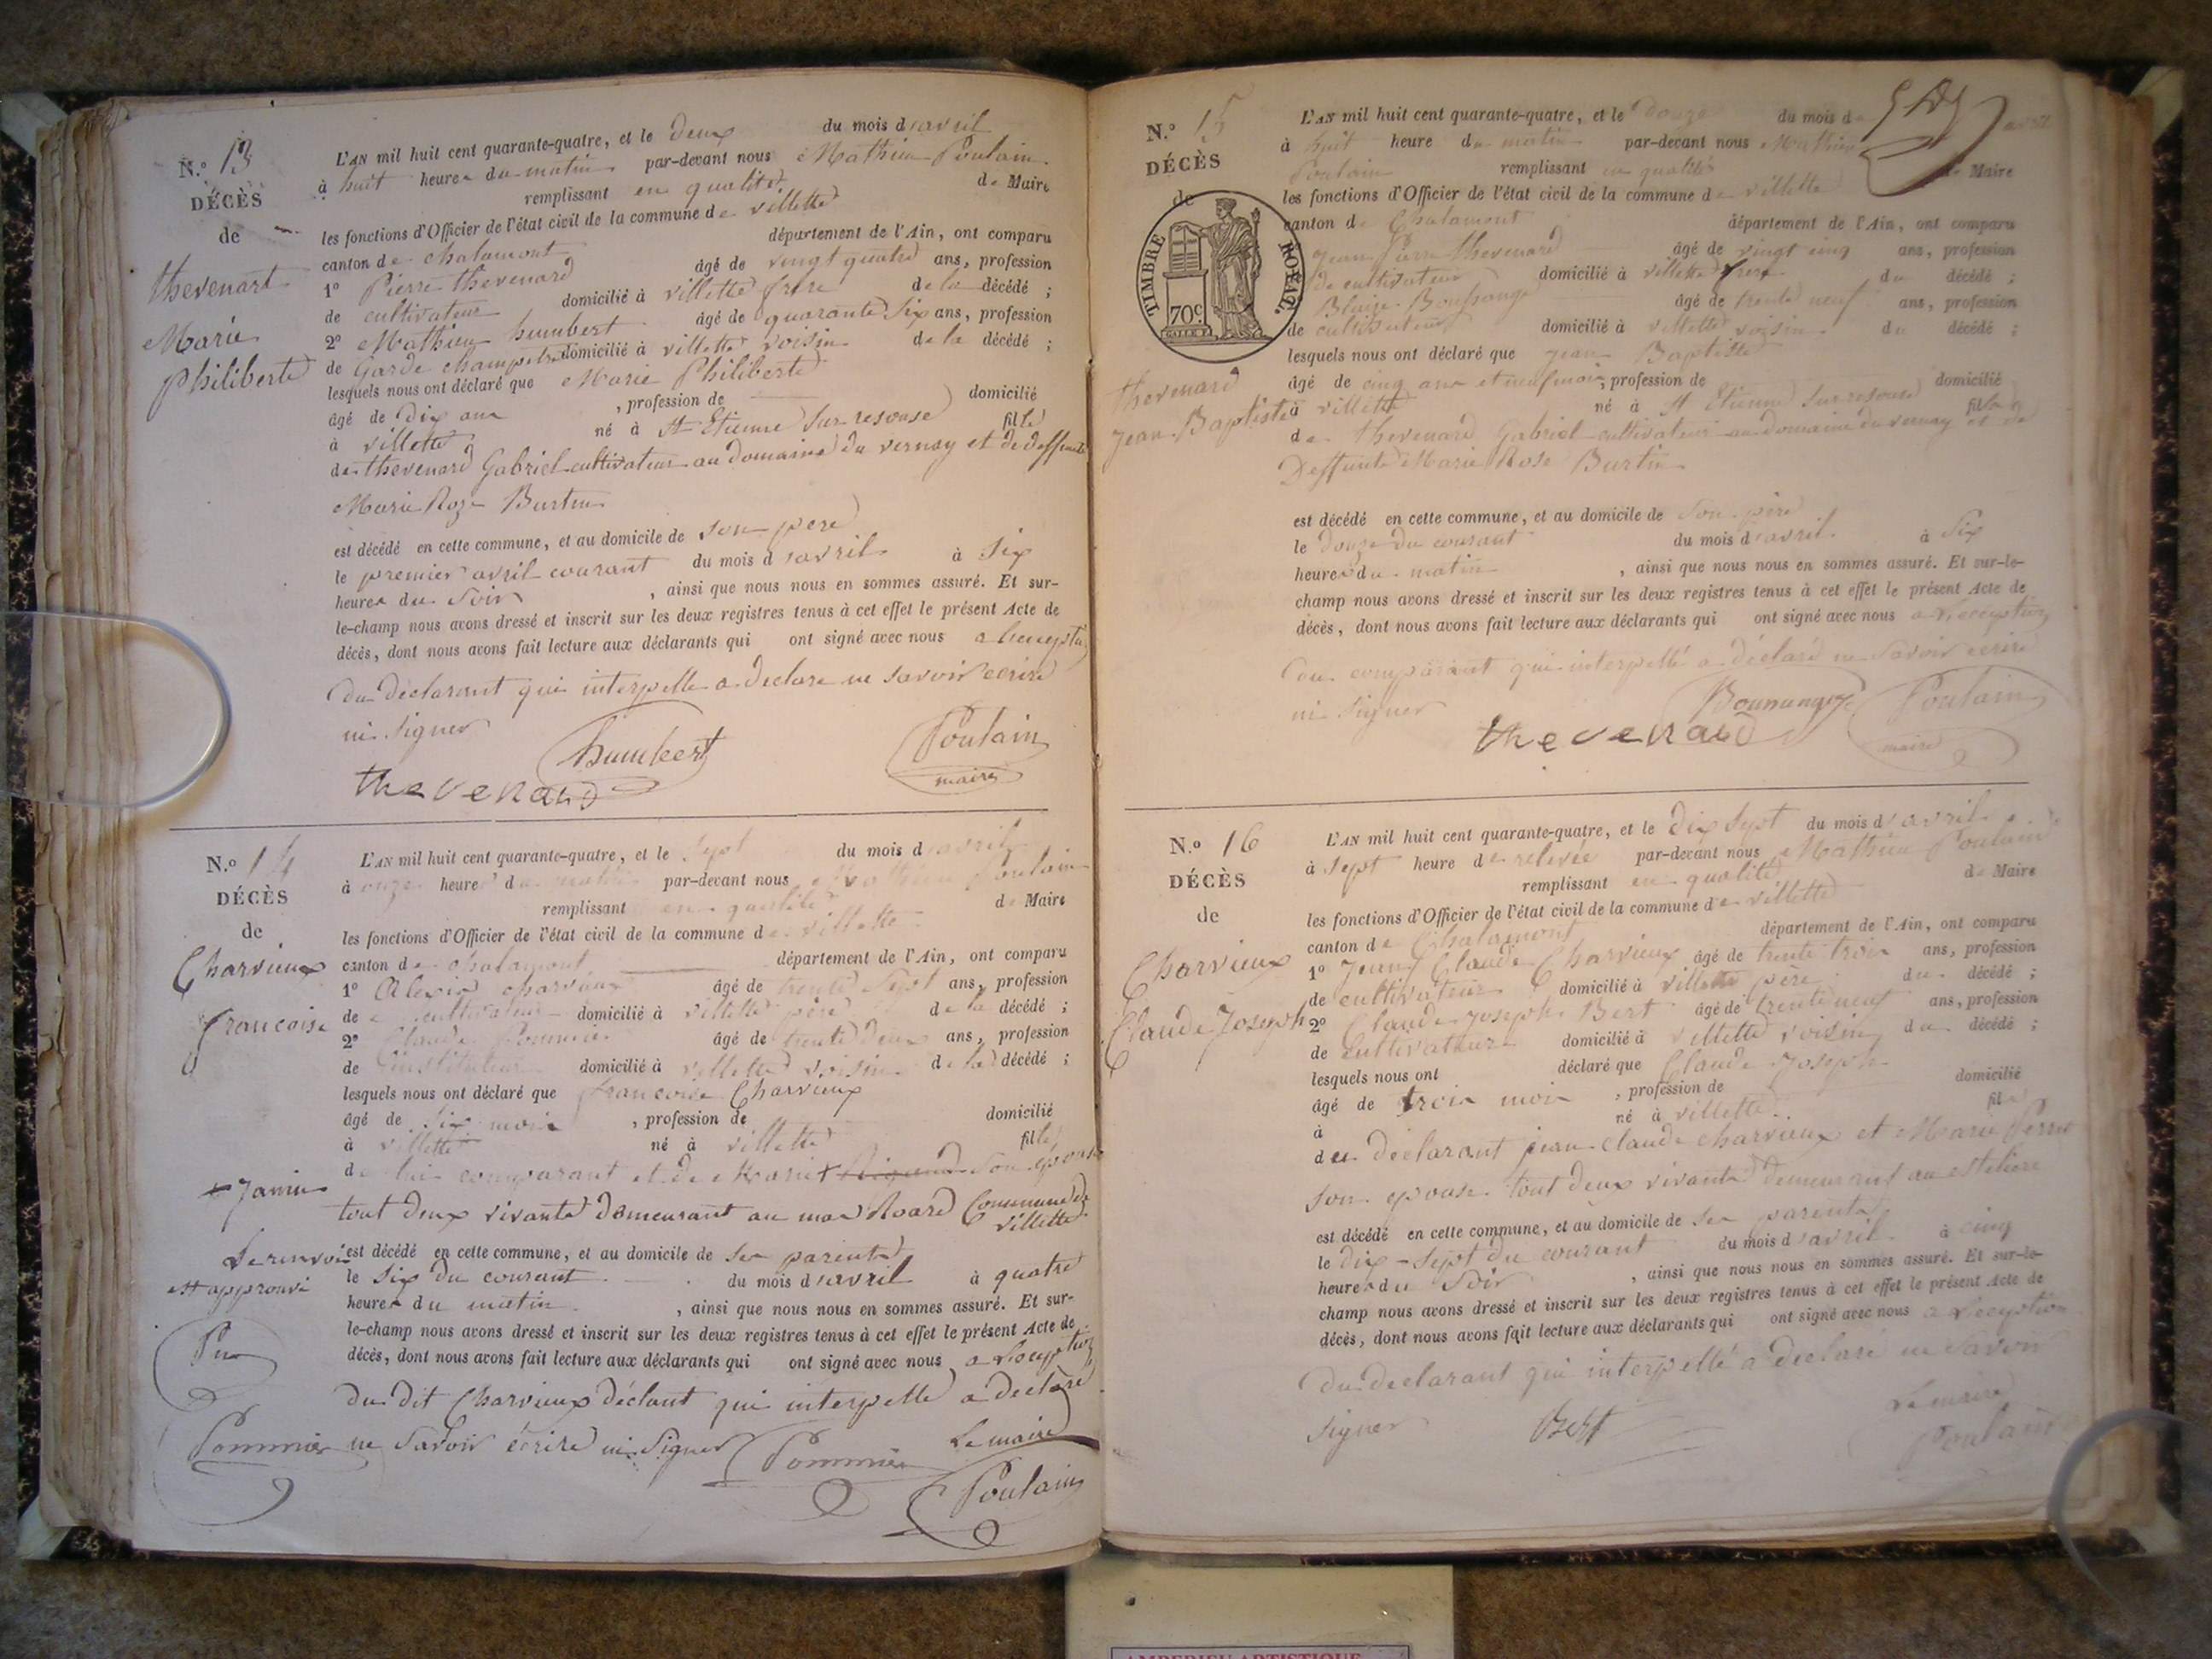 N.º 13
DÉCÈS
de
thevenart
Marie
philiberte
L'AN mil huit cent quarante-quatre, et le deux du mois d'avril
à huit heures du matin par-devant nous Mathieu Poulain
remplissant en qualité de Maire
les fonctions d'Officier de l'état civil de la commune de villette
canton de chalamont département de l'Ain, ont comparu
1º Pierre thevenard âgé de vingt quatre ans, profession
de cultivateur domicilié à villette frere de la décédé ;
2º Mathieu humbert âgé de quarante six ans, profession
de Garde champetre domicilié à villette voisin de la décédé ;
lesquels nous ont déclaré que Marie Philiberte
âgé de dix ans , profession de domicilié
à villette né à St Etienne sur resouse fille
de thevenard Gabriel cultivateur au domaine du vernay et de deffunte
Marie Roze Burtin
est décédé en cette commune, et au domicile de son pere
le premier avril courant du mois d'avril à six
heures du soir , ainsi que nous nous en sommes assuré. Et sur-
le-champ nous avons dressé et inscrit sur les deux registres tenus à cet effet le présent Acte de
décès, dont nous avons fait lecture aux déclarants qui ont signé avec nous
du déclarant qui interpelle a declare ne savoir ecrire
ni signer
humbert
Poulain
maire
thevenard
N.º 14
DÉCÈS
de
Charvieux
francoise
L'AN mil huit cent quarante-quatre, et le sept du mois d'avril
à onze heures du matin par-devant nous Mathieu Poulain
remplissant en qualité de Maire
les fonctions d'Officier de l'état civil de la commune de villette
canton de chalamont département de l'Ain, ont comparu
1º Alexis charvieux âgé de trente sept ans, profession
de cultivateur domicilié à villette père de la décédé ;
2º Claude Pommier âgé de trente deux ans, profession
de instituteur domicilié à villette voisin de la décédé ;
lesquels nous ont déclaré que francoise Charvieux
âgé de six mois , profession de domicilié
à villette né à villette fille
de lui comparant et de Marie son epouse
Janin
tout deux vivants demeurant au mas Roard Commune de
villette
Le renvoi
est approuvé
est décédé en cette commune, et au domicile de ses parents
le six du courant du mois d'avril à quatre
heures du matin , ainsi que nous nous en sommes assuré. Et sur-
le-champ nous avons dressé et inscrit sur les deux registres tenus à cet effet le présent Acte de
décès, dont nous avons fait lecture aux déclarants qui ont signé avec nous
du dit Charvieux déclant qui interpelle a declare
ne savoir écrire ni signer
Pommier
Pommier
Le maire
Poulain
N.º 15
DÉCÈS
de
TIMBRE ROYAL.
70c
thevenard
Jean Baptiste
L'AN mil huit cent quarante-quatre, et le douze du mois d
à huit heure du matin par-devant nous Mathieu
Poulain remplissant en qualité de Maire
les fonctions d'Officier de l'état civil de la commune de villette
canton de Chalamont département de l'Ain, ont comparu
Jean Pierre thevenard âgé de vingt cinq ans, profession
de cultivateur domicilié à villette frere du décédé ;
Blaize âgé de trente neuf ans, profession
de cultivateur domicilié à villette voisin du décédé ;
lesquels nous ont déclaré que jean Baptiste
âgé de cinq ans et neuf mois, profession de domicilié
à villette né à St Etienne sur resouse fils
de thevenard Gabriel cultivateur au domaine du vernay et de
Deffunte Marie Rose Burtin
est décédé en cette commune, et au domicile de son père
le douze du courant du mois d'avril à six
heures du matin , ainsi que nous nous en sommes assuré. Et sur-le-
champ nous avons dressé et inscrit sur les deux registres tenus à cet effet le présent Acte de
décès, dont nous avons fait lecture aux déclarants qui ont signé avec nous
comparant qui interpellé a déclaré ne savoir ecrire
ni signer
Poulain
maire
thevenard
N.º 16
DÉCÈS
de
Charvieux
Claude Joseph
L'AN mil huit cent quarante-quatre, et le dix sept du mois d'avril
à sept heure de relevée par-devant nous Mathieu Poulain
remplissant en qualité de Maire
les fonctions d'Officier de l'état civil de la commune de villette
canton de Chalamont département de l'Ain, ont comparu
1º Jean Claude Charvieux âgé de trente trois ans, profession
de cultivateur domicilié à villette père du décédé ;
2º Claude joseph Bert âgé de trente neuf ans, profession
de cultivateur domicilié à villette voisin du décédé ;
lesquels nous ont déclaré que Claude Joseph
âgé de trois mois , profession de domicilié
à né à villette fils
du déclarant jean claude charvieux et Marie
son epouse tout deux vivants demeurant au
est décédé en cette commune, et au domicile de ses parents
le dix-sept du courant du mois d'avril à cinq
heures du soir , ainsi que nous nous en sommes assuré. Et sur-le-
champ nous avons dressé et inscrit sur les deux registres tenus à cet effet le présent Acte de
décès, dont nous avons fait lecture aux déclarants qui ont signé avec nous a l'exception
du declarant qui interpellé a declaré ne savoir
signer
Bert
Le maire
Poulain